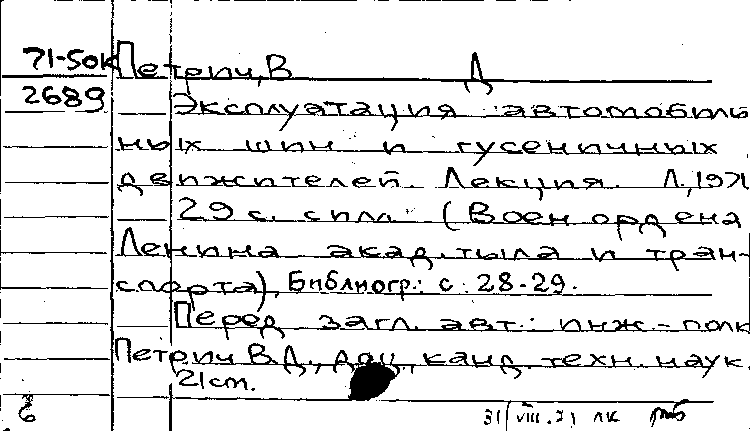 71-50к Петрич, В Д
2689 Эксплуатация автомобиль
ных шин и гусеничных
движителей. Лекция. Л., 1971
29 с. с илл. (Воен ордена
Ленина акад. тыла и тран-
спорта). Библиогр.: с. 28-29.
Перед загл. авт.: инж-полк
Петрич В.Д., доц., канд. техн. наук.
21 cm.
6 31/VIII.71 лк